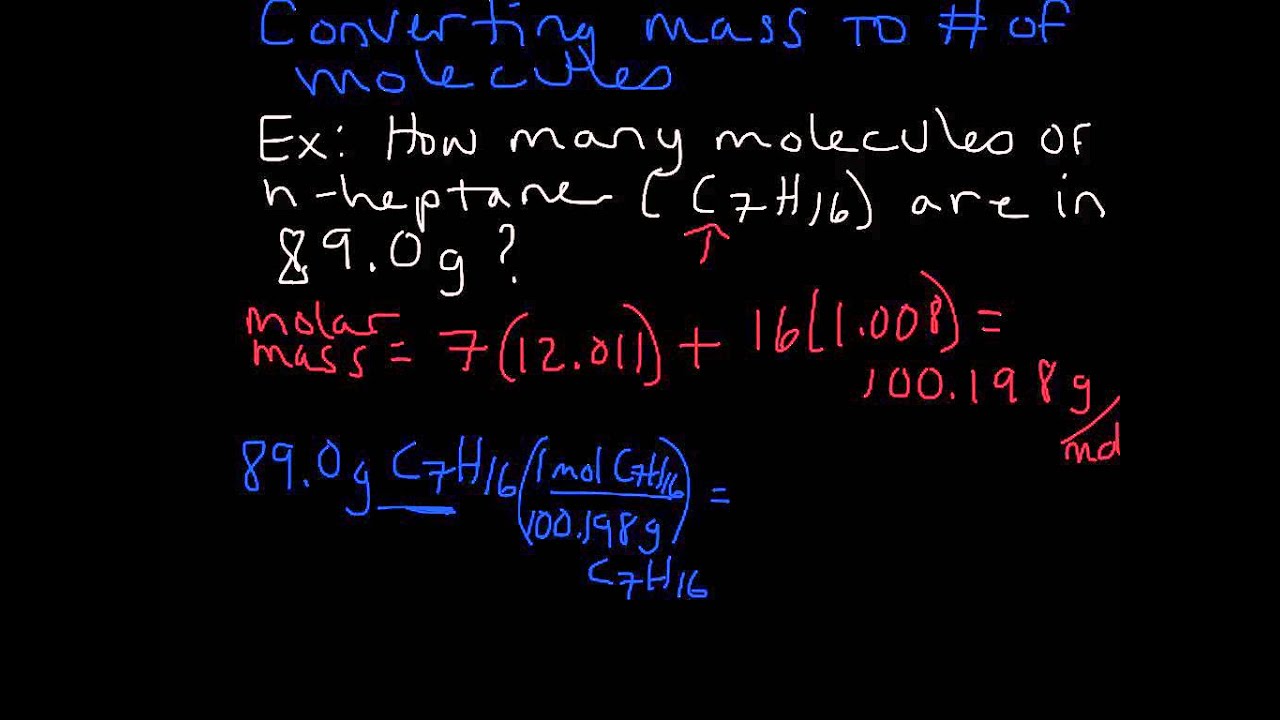 Converting mass to # of
molecules
Ex: How many molecules of
n-heptane (C7H16) are in
89.0g?
molar
mass = 7(12.011) + 16(1.008) =
100.198g
/mol
89.0g C7H16 (1 mol C7H16 / 100.198g C7H16) =